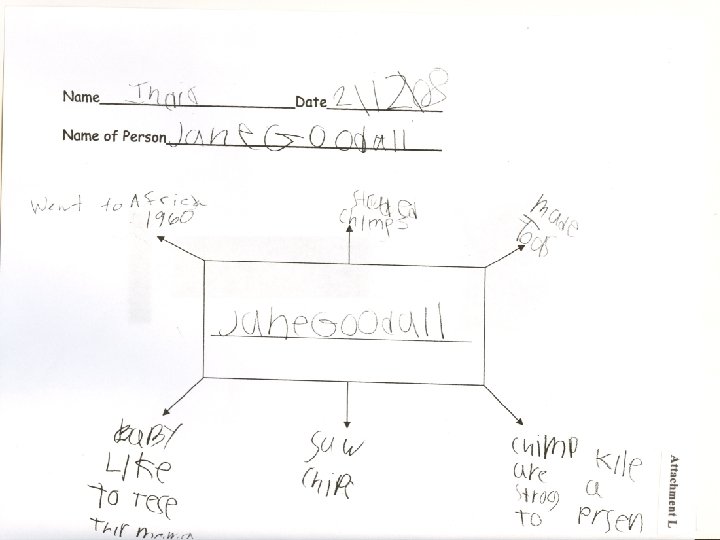 Name Date 2\12\08
Name of Person Jane Goodall
Went to Africa
1960
chimps
made
Tools
JaneGoodall
baby
Like
To rese
suw
chip
chimp
are
strog
to
kile
a
prsen
Attachment L